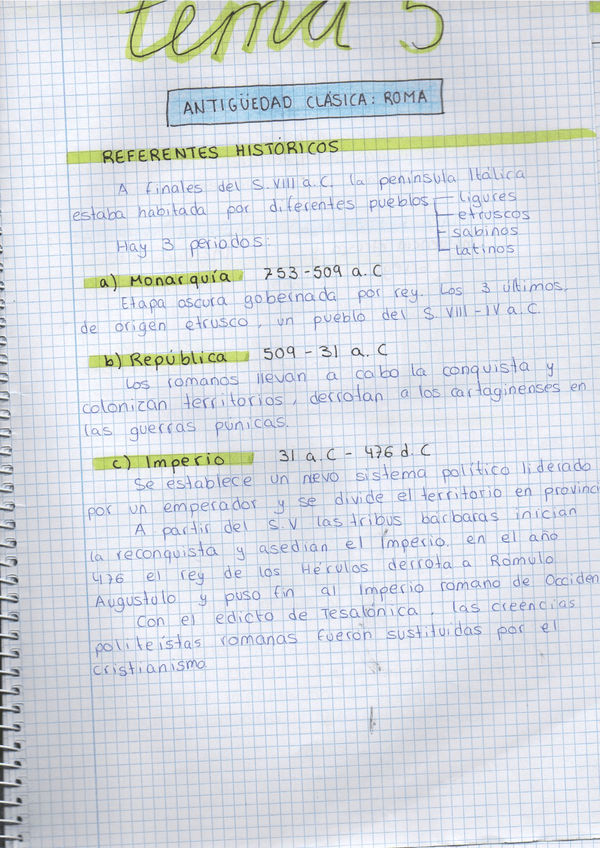 tema 5
ANTIGÜEDAD CLÁSICA: ROMA
REFERENTES HISTÓRICOS
A finales del S.VIII a.C. la península Itálica
estaba habitada por diferentes pueblos
ligures
etruscos
sabinos
latinos
Hay 3 periodos:
a) Monarquía 753-509 a.C
Etapa oscura gobernada por rey. Los 3 últimos,
de origen etrusco, un pueblo del S. VIII-IV a.C.
b) República 509 - 31 a.C
Los romanos llevan a cabo la conquista y
colonizan territorios, derrotan a los cartaginenses en
las guerras púnicas.
c) Imperio 31 a.C - 476 d.C
Se establece un nevo sistema político liderado
por un emperador y se divide el territorio en provinci
A partir del S.V las tribus bárbaras inician
la reconquista y asedian el Imperio. en el año
476 el rey de los Hérulos derrota a Rómulo
Augustolo y puso fin al Imperio romano de Occiden
Con el edicto de Tesalónica, las creencias
politeístas romanas fueron sustituidas por el
cristianismo